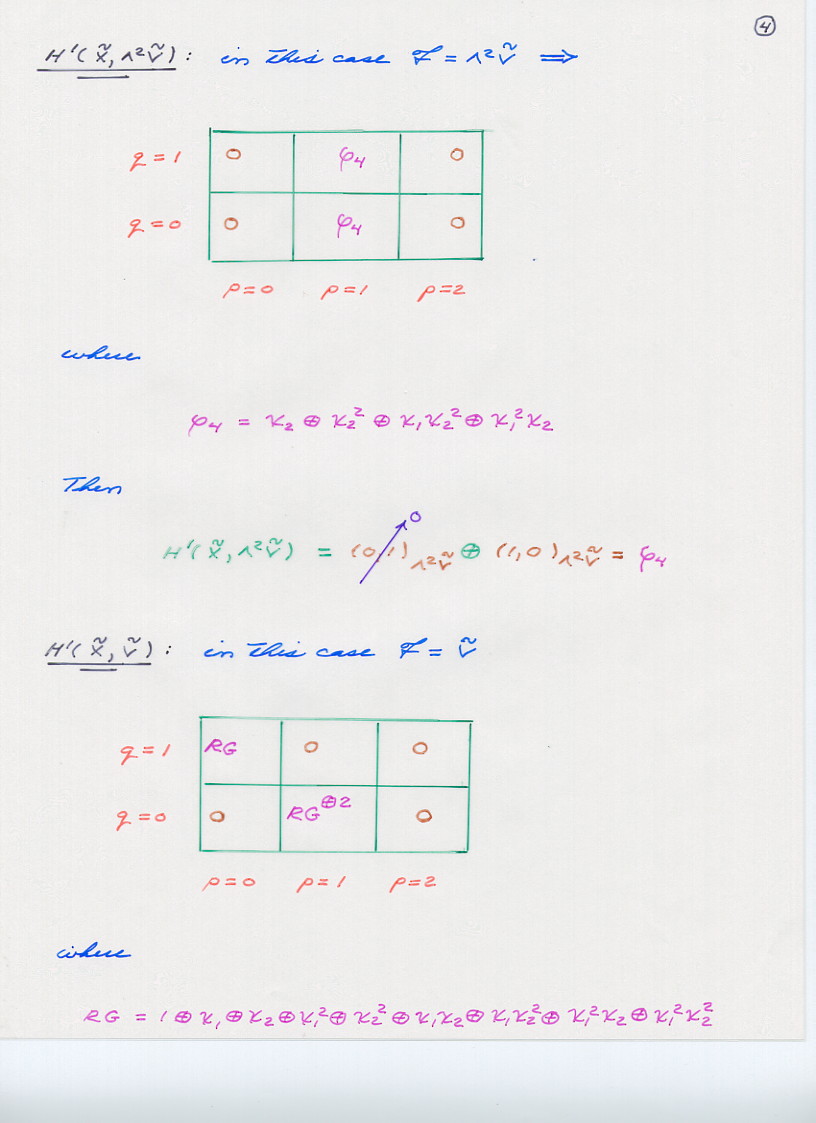 ④
H¹(X̃, ∧²Ṽ): in this case ℱ = ∧²Ṽ ⟹
q = 1 0 φ₄ 0
q = 0 0 φ₄ 0
p=0 p=1 p=2
where
φ₄ = χ₂ ⊕ χ₂² ⊕ χ₁χ₂² ⊕ χ₁²χ₂
Then
0
H¹(X̃, ∧²Ṽ) = (0,1)_∧²Ṽ ⊕ (1,0)_∧²Ṽ = φ₄
H¹(X̃, Ṽ): in this case ℱ = Ṽ
q = 1 RG 0 0
q = 0 0 RG^⊕2 0
p=0 p=1 p=2
where
RG = 1 ⊕ χ₁ ⊕ χ₂ ⊕ χ₁² ⊕ χ₂² ⊕ χ₁χ₂ ⊕ χ₁χ₂² ⊕ χ₁²χ₂ ⊕ χ₁²χ₂²